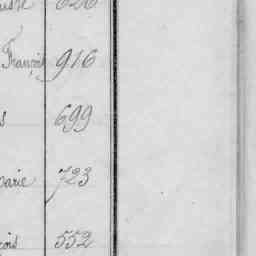 626
François 916
s 699
marie 723
çois 552